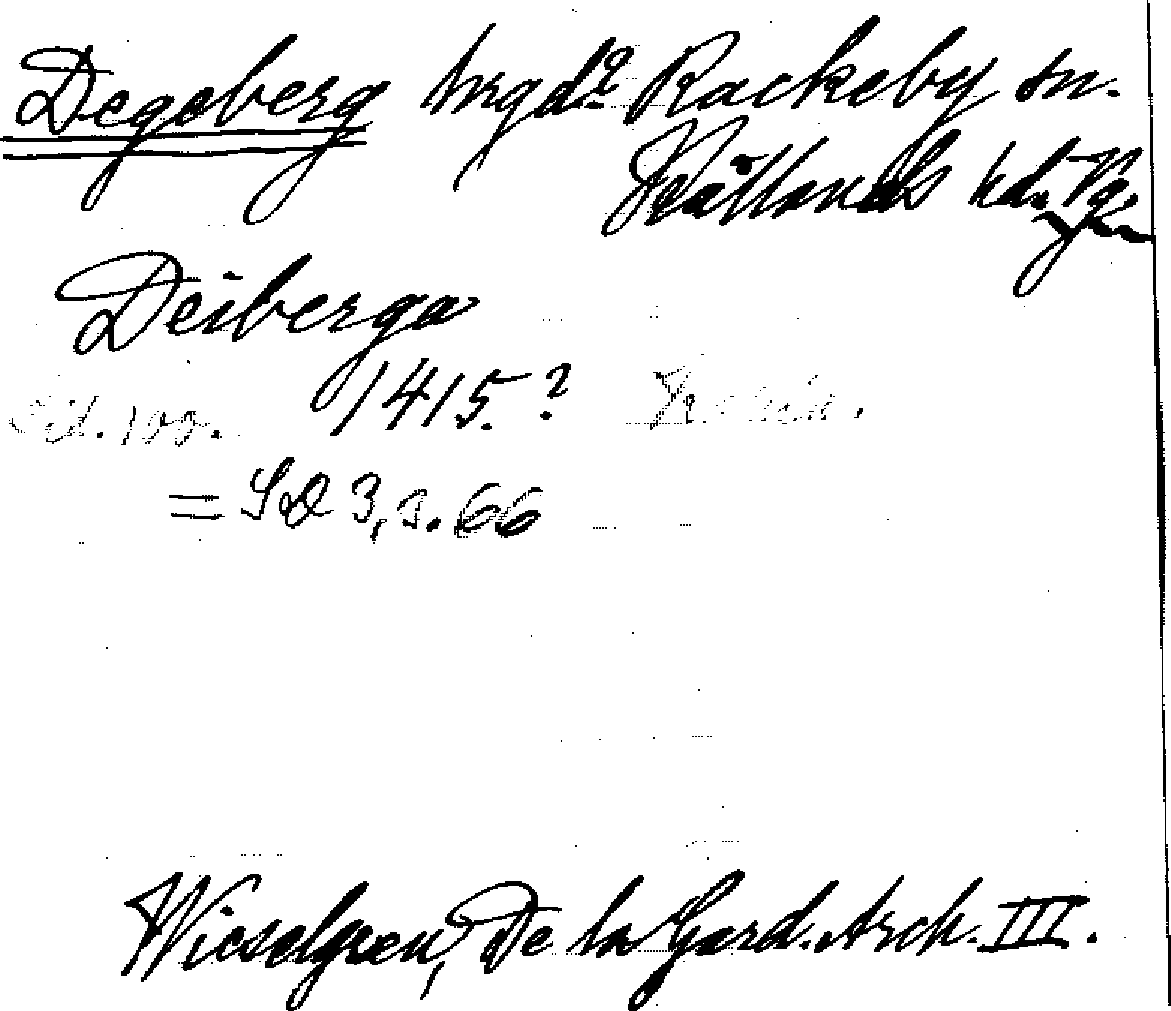 Degeberg hrgd? Rackeby sn.
Kållands hd. Vg.
Deiberga
Sid. 100. 1415.?
= SD 3, s. 66
Wieselgren, De la Gard. Arch. III.